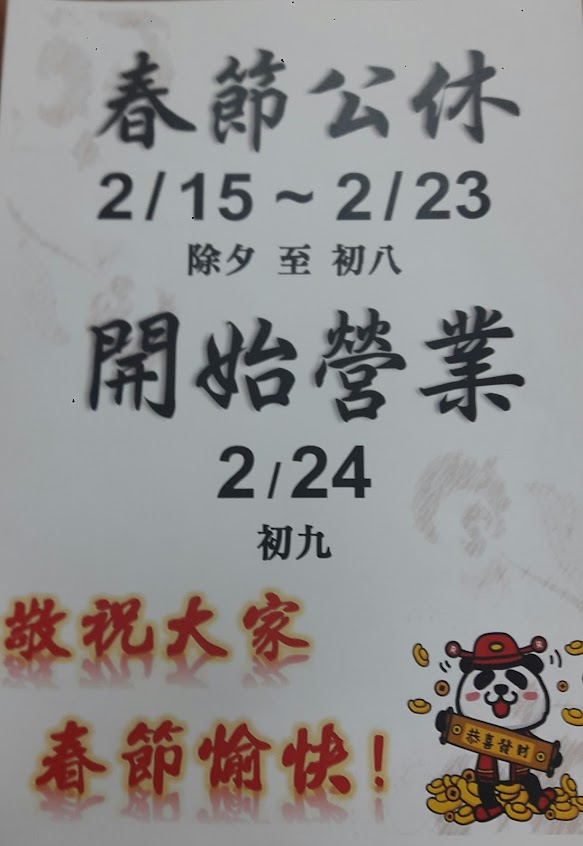 春節公休
2/15~2/23
除夕 至 初八
開始營業
2/24
初九
敬祝大家
春節愉快!
恭喜發財